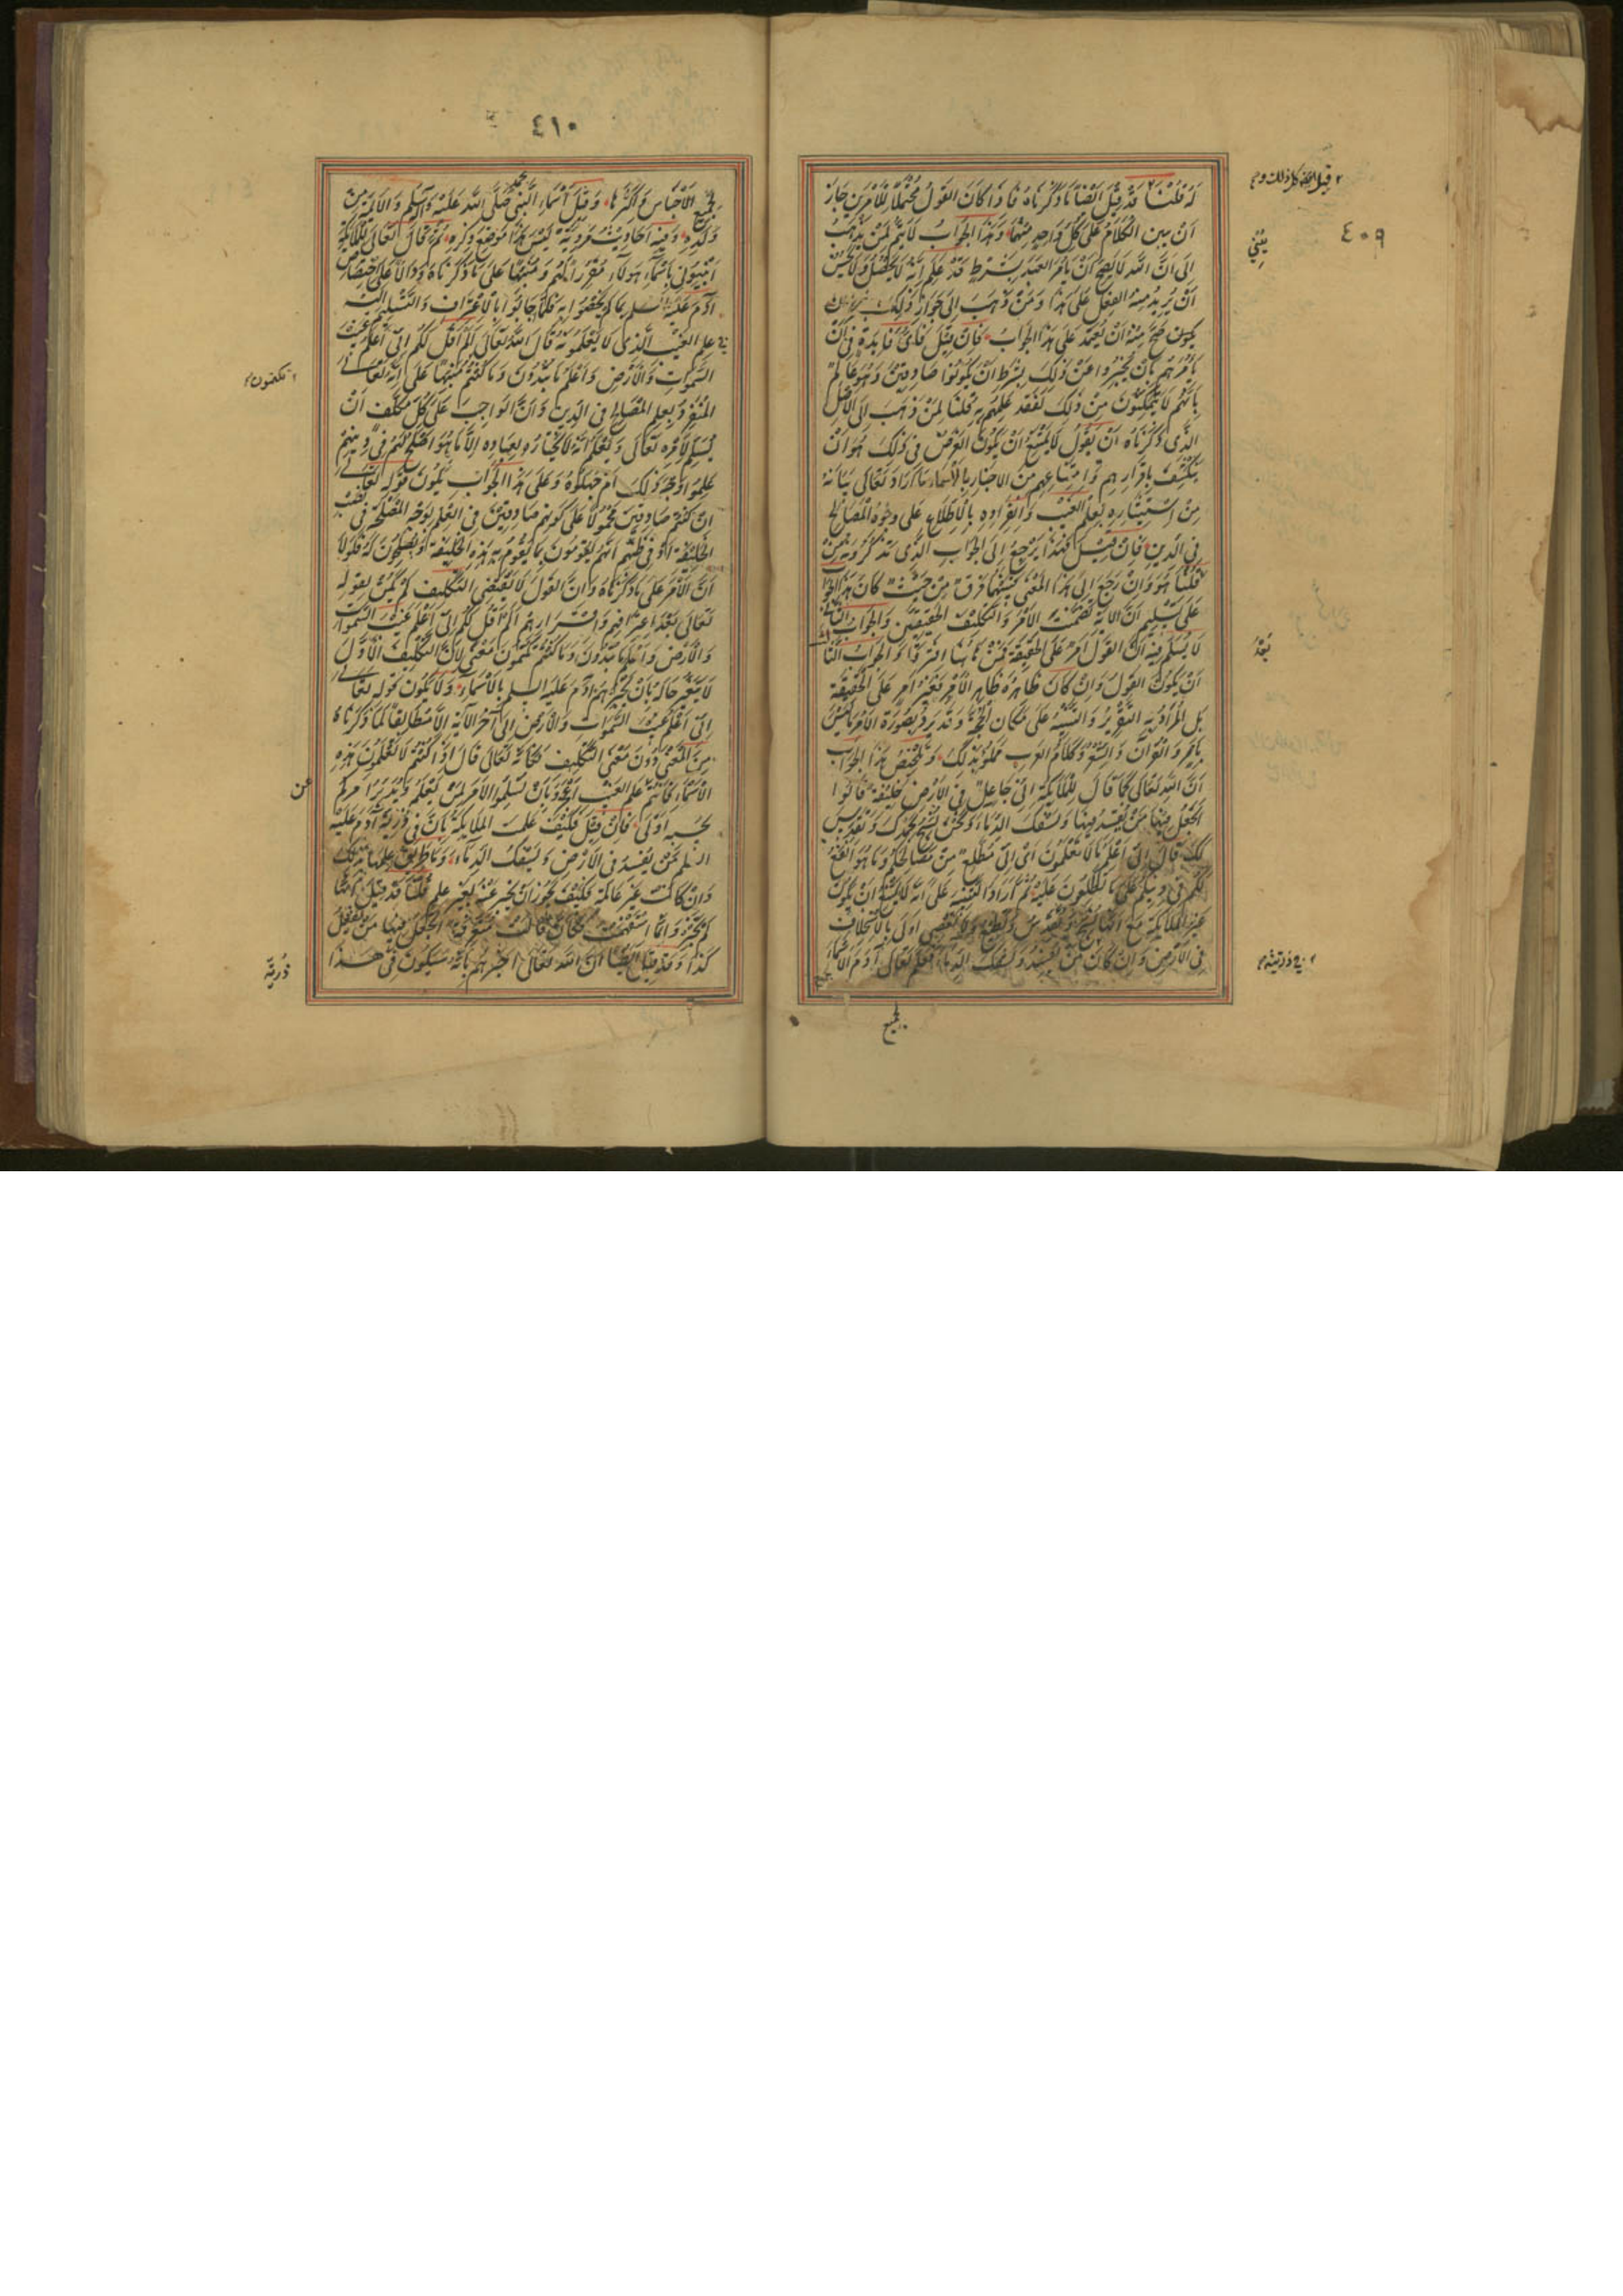 ٤٠٩
لَهُ قُلْنَا قَدْ قِيْلَ اَيْضًا مَا ذَكَرْنَاهُ فَاِذَا كَانَ القَوْلُ مُحْتَمِلًا لِلْاَمْرَيْنِ جَازَ
اَنْ يبنى الكَلَامُ عَلَى كُلِّ وَاحِدٍ مِنْهُمَا وَهَذَا الجَوَابُ لَا يَتِمُّ لِمَنْ يَذْهَبُ
اِلَى اَنَّ اللهَ لَا يَصِحُّ اَنْ يَأمُرَ العَبْدَ بِشَرْطٍ قَدْ عَلِمَ اَنَّهُ لَا يَحْصُلُ وَلَا يَحْسُنُ
اَنْ يُرِيْدَ مِنْهُ الفِعْلَ عَلَى هَذَا وَمَنْ ذَهَبَ اِلَى جَوَازِ ذَلِكَ
صَحَّ مِنْهُ اَنْ يَعْتَمِدَ عَلَى هَذَا الجَوَابِ فَاِنْ قِيْلَ فَاَىُّ فَايِدَةٍ فِى اَنْ
يَأمُرَهُمْ بِاَنْ يُخْبِرُوا عَنْ ذَلِكَ بِشَرْطِ اَنْ يَكُوْنُوا صَادِقِيْنَ وَهُوَ عَالِمٌ
بِاَنَّهُمْ لَا يَتَمَكَّنُوْنَ مِنْ ذَلِكَ لِفَقْدِ عِلْمِهِمْ بِهِ قُلْنَا لِمَنْ ذَهَبَ اِلَى الاَصْلِ
الَّذِى ذَكَرْنَاهُ اَنْ يَقُوْلَ لَا يَمْتَنِعُ اَنْ يَكُوْنَ الغَرَضُ فِى ذَلِكَ هُوَ اَنْ
يَنْكَشِفَ بِاِقْرَارِهِمْ وَاِمْتِنَاعِهِمْ مِنَ الاِخْبَارِ بِالاَسْمَاءِ مَا اَرَادَ تَعَالَى بَيَانَهُ
مِنْ اِسْتِيْثَارِهِ بِعِلْمِ الغَيْبِ وَاِنْفِرَادِهِ بِالاِطِّلَاعِ عَلَى وُجُوْهِ المَصَالِحِ
فِى الدِّيْنِ فَاِنْ قِيْلَ فَهَذَا يَرْجِعُ اِلَى الجَوَابِ الَّذِى تَذْكُرُوْنَهُ مِنْ بَعْدُ
قُلْنَا هُوَ وَاِنْ رَجَعَ اِلَى هَذَا المَعْنَى فَبَيْنَهُمَا فَرْقٌ مِنْ حَيْثُ كَانَ هَذَا الجَوَابُ
عَلَى تَسْلِيْمِ اَنَّ الايَةَ تَضَمَّنَتِ الاَمْرَ وَالتَّكْلِيْفَ الحَقِيْقِيَّيْنِ وَالجَوَابُ الثَّانِى
لَا يُسَلَّمُ فِيْهِ اَنَّ القَوْلَ اَمْرٌ عَلَى الحَقِيْقَةِ فَمِنْ هَاهُنَا اِفْتَرَقَا وَالجَوَابُ الثَّانِى
اَنْ يَكُوْنَ القَوْلُ وَاِنْ كَانَ ظَاهِرُهُ ظَاهِرَ الاَمْرِ فَغَيْرُ اَمْرٍ عَلَى الحَقِيْقَةِ
بَلِ المُرَادُ بِهِ التَّقْرِيْرُ وَالتَّنْبِيْهُ عَلَى مَكَانِ الحُجَّةِ وَقَدْ يَرِدُ بِصُوْرَةِ الاَمْرِ مَا لَيْسَ
بِاَمْرٍ وَالقُرْآنُ وَالشِّعْرُ وَكَلَامُ العَرَبِ مَمْلُوٌّ بِذَلِكَ وَتَلْخِيْصُ هَذَا الجَوَابِ
اَنَّ اللهَ تَعَالَى لَمَّا قَالَ لِلْمَلَايِكَةِ اِنِّى جَاعِلٌ فِى الاَرْضِ خَلِيْفَةً قَالُوا
اَتَجْعَلُ فِيْهَا مَنْ يُفْسِدُ فِيْهَا وَيَسْفِكُ الدِّمَاءَ وَنَحْنُ نُسَبِّحُ بِحَمْدِكَ وَنُقَدِّسُ
لَكَ قَالَ اِنِّى اَعْلَمُ مَا لَا تَعْلَمُوْنَ اَىْ اِنِّى مُطَّلِعٌ مِنْ مَصَالِحِكُمْ وَمَا هُوَ اَنْفَعُ
لَكُمْ فِى دِيْنِكُمْ عَلَى مَا لَا تَطَّلِعُوْنَ عَلَيْهِ ثُمَّ اَرَادَ التَّنْبِيْهَ عَلَى اَنَّهُ لَا يَمْتَنِعُ اَنْ يَكُوْنَ
غَيْرُ المَلَايِكَةِ مَعَ اَنَّهَا تُسَبِّحُ وَتُقَدِّسُ وَتُطِيْعُ وَلَا تَعْصِى اَوْلَى بِالاِسْتِخْلَافِ
فِى الاَرْضِ وَاِنْ كَانَ مَنْ يُفْسِدُ وَيَسْفِكُ الدِّمَاءَ فَعَلَّمَ تَعَالَى آدَمَ الاَسْمَاءَ
يَبْنِىَ
بَعْدُ
فى ذريته
لجميع
٤١٠
لجميع الاَجْنَاسِ وَاَكْثَرِهَا وَقِيْلَ اَسْمَاءَ النَّبِىِّ محمد صَلَّى اللهُ عَلَيْهِ وَآلِهِ وَسَلَّم وَالاَيِمَّةِ مِنْ
وُلْدِهِ وَفِيْهِ اَحَادِيْثُ مَرْوِيَّةٌ لَيْسَ هَذَا مَوْضِعَ ذِكْرِهِ ثُمَّ قَالَ تَعَالَى لِلْمَلَايِكَةِ
اَنْبِئُوْنِى بِاَسْمَاءِ هَؤُلَاءِ مُقَرِّرًا لَهُمْ وَمُنَبِّهًا عَلَى مَا ذَكَرْنَاهُ وَدَالًّا عَلَى اخْتِصَاصِ
آدَمَ عَلَيْهِ السلم بِمَا لَمْ يُخَصُّوا بِهِ فَلَمَّا اَجَابُوا بِالاِعْتِرَافِ وَالتَّسْلِيْمِ اِلَيْهِ
عِلْمَ الغَيْبِ الَّذِى لَا يَعْلَمُوْنَهُ قَالَ اللهُ تَعَالَى اَلَمْ اَقُلْ لَكُمْ اِنِّى اَعْلَمُ غَيْبَ
السَّمَوَاتِ وَالاَرْضِ وَاَعْلَمُ مَا تُبْدُوْنَ وَمَا كُنْتُمْ مُنَبِّهًا عَلَى اَنَّهُ تَعَالَى
المُنْفَرِدُ بِعِلْمِ المَصَالِحِ فِى الدِّيْنِ وَاَنَّ الوَاجِبَ عَلَى كُلِّ مُكَلَّفٍ اَنْ
يُسَلِّمَ لِاَمْرِهِ تَعَالَى وَيَعْلَمَ اَنَّهُ لَا يَخْتَارُ لِعِبَادِهِ اِلَّا مَا هُوَ اَصْلَحُ لَهُمْ فِى دِيْنِهِمْ
عَلِمُوا وَجْهَ ذَلِكَ اَمْ جَهِلُوْهُ وَعَلَى هَذَا الجَوَابِ يَكُوْنُ قَوْلُهُ تَعَالَى
اِنْ كُنْتُمْ صَادِقِيْنَ مَحْمُوْلًا عَلَى كَوْنِهِمْ صَادِقِيْنَ فِى العِلْمِ بِوَجْهِ المَصْلَحَةِ فِى نَصْبِ
الخَلِيْفَةِ اَوْ فِى ظَنِّهِمْ اَنَّهُمْ يَقُوْمُوْنَ بِمَا يَقُوْمُ بِهِ هَذَا الخَلِيْفَةُ اَوْ يَصْلَحُوْنَ لَهُ فَلَوْلَا
اَنَّ الاَمْرَ عَلَى مَا ذَكَرْنَاهُ وَاَنَّ القَوْلَ لَا يَقْتَضِى التَّكْلِيْفَ لَمْ يَكُنْ لِقَوْلِهِ
تَعَالَى بَعْدَ اعْتِرَافِهِمْ وَاِقْرَارِهِمْ اَلَمْ اَقُلْ لَكُمْ اِنِّى اَعْلَمُ غَيْبَ السَّمَوَاتِ
وَالاَرْضِ وَاَعْلَمُ مَا تُبْدُوْنَ وَمَا كُنْتُمْ تَكْتُمُوْنَ مَعْنًى لِاَنَّ التَّكْلِيْفَ الاَوَّلَ
لَا يَتَغَيَّرُ حَالُهُ بِاَنْ يُخْبِرَهُمْ آدَمُ عَلَيْهِ السلم بِالاَسْمَاءِ وَلَا يَكُوْنُ قَوْلُهُ تَعَالَى
اِنِّى اَعْلَمُ غَيْبَ السَّمَوَاتِ وَالاَرْضِ اِلَى آخِرِ الآيَةِ اِلَّا مُطَابِقًا لِمَا ذَكَرْنَاهُ
مِنَ المَعْنَى دُوْنَ مَعْنَى التَّكْلِيْفِ فَكَاَنَّهُ تَعَالَى قَالَ اِذَا كُنْتُمْ لَا تَعْلَمُوْنَ هَذِهِ
الاَسْمَاءَ فَاَنْتُمْ عَنْ عِلْمِ الغَيْبِ اَعْجَزُ وَبِاَنْ تُسَلِّمُوا الاَمْرَ لِمَنْ يَعْلَمُ وَيُدَبِّرُ اَمْرَكُمْ
بِحَسَبِهِ اَوْلَى فَاِنْ قِيْلَ فَكَيْفَ عَلِمَتِ المَلَايِكَةُ بِاَنَّ فِى ذُرِّيَّةِ آدَمَ عَلَيْهِ
السلم مَنْ يُفْسِدُ فِى الاَرْضِ وَيَسْفِكُ الدِّمَاءَ وَمَا طَرِيْقُ عِلْمِهَا بِذَلِكَ
وَاِنْ كَانَتْ غَيْرَ عَالِمَةٍ فَكَيْفَ يَجُوْزُ اَنْ تُخْبِرَ عَنْهُ بِغَيْرِ عِلْمٍ قُلْنَا قَدْ قِيْلَ اِنَّهَا
لَمْ تُخْبِرْ وَاِنَّمَا اسْتَفْهَمَتْ فَكَاَنَّهَا قَالَتْ مُتَعَرِّفَةً اَتَجْعَلُ فِيْهَا مَنْ يَفْعَلُ
كَذَا وَقَدْ قِيْلَ اَيْضًا اَنَّ اللهَ تَعَالَى اَخْبَرَهُمْ بِاَنَّهُ سَيَكُوْنُ فِى هَذَا
تكتمون
عن
ذُرِّيَّة